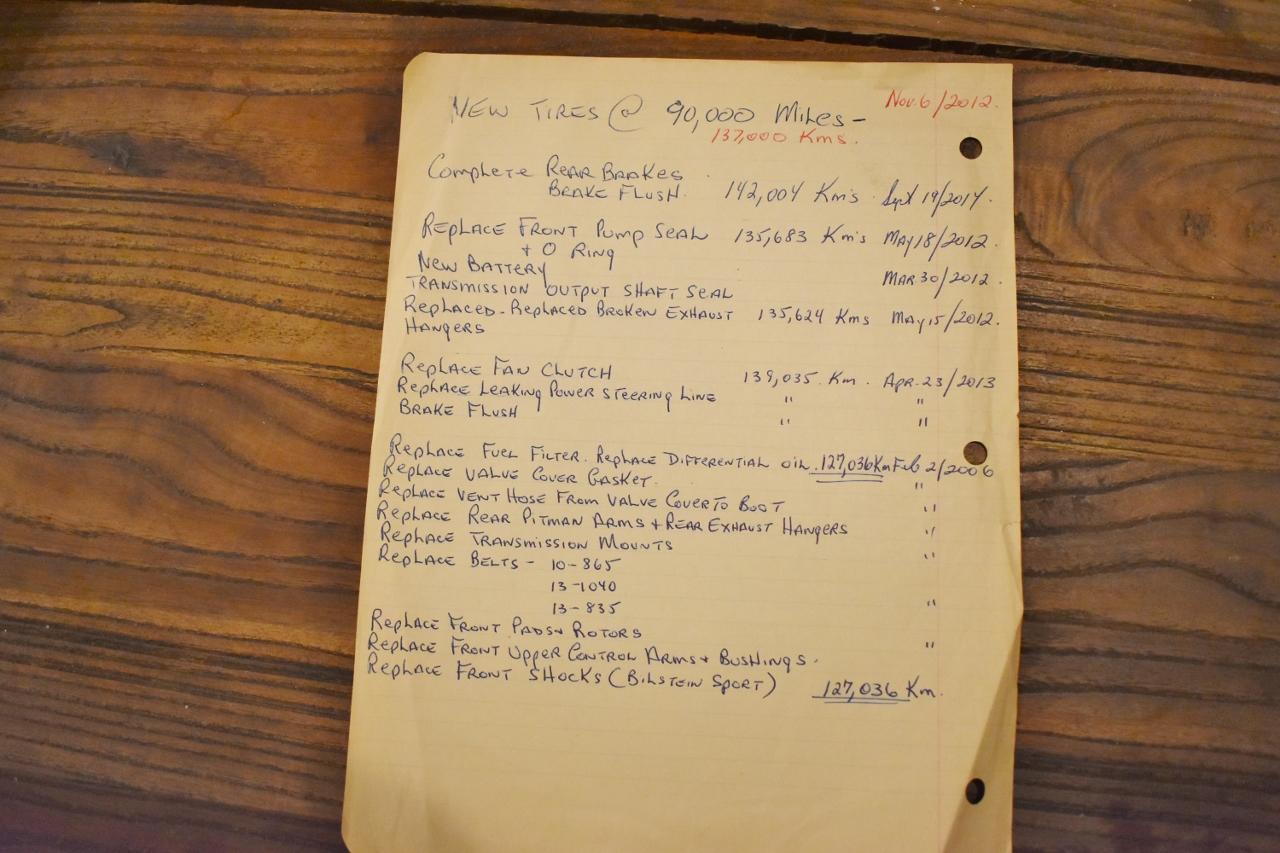 NEW TIRES @ 90,000 Miles - Nov. 6/2012.
137,000 Kms.
Complete Rear Brakes
Brake Flush. 142,004 Km's Sept 19/2014.
Replace Front Pump Seal 135,683 Km's May 18/2012.
+ O Ring
New Battery Mar 30/2012.
Transmission Output Shaft Seal
Replaced - Replaced Broken Exhaust 135,624 Kms May 15/2012.
Hangers
Replace Fan Clutch 139,035. Km. Apr. 23/2013
Replace Leaking Power Steering Line " "
Brake Flush " "
Replace Fuel Filter. Replace Differential oil. 127,036 Km Feb 2/2006
Replace Valve Cover Gasket. "
Replace Vent Hose From Valve Cover To Boot "
Replace Rear Pitman Arms + Rear Exhaust Hangers "
Replace Transmission Mounts "
Replace Belts - 10-865
13-1040
13-835 "
Replace Front Pads + Rotors
Replace Front Upper Control Arms + Bushings. "
Replace Front Shocks (Bilstein Sport) 127,036 Km.